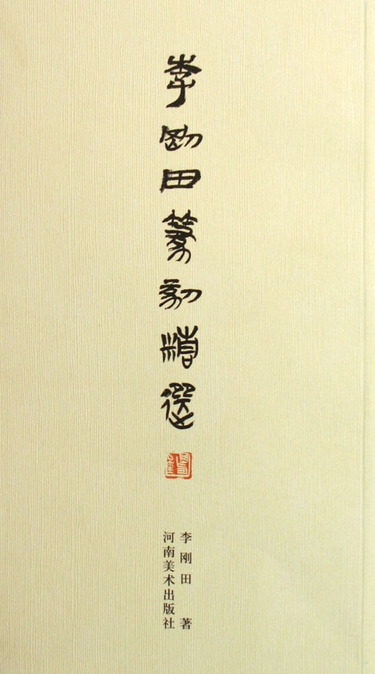 李刚田篆刻精选
李刚田 著
河南美术出版社